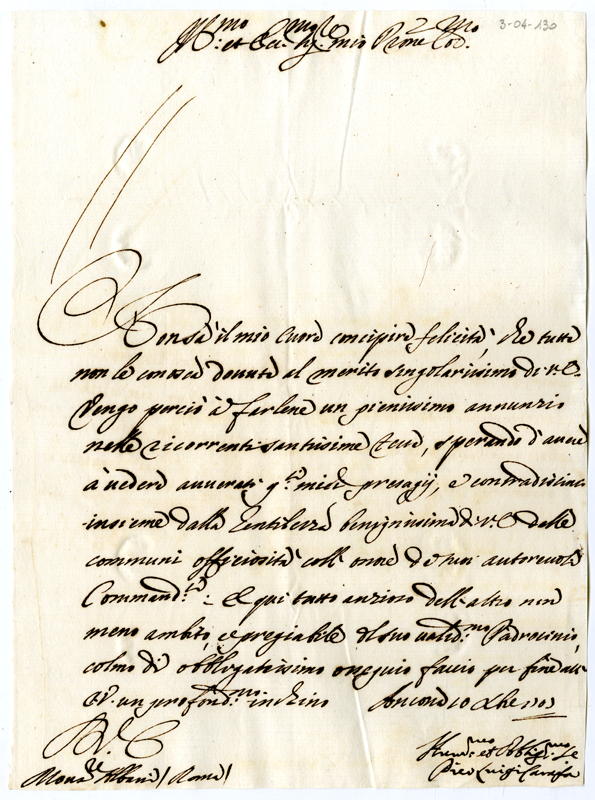 3-04-130
Ill.mo et Ecc. Sig. mio Prone Col.mo
Non sa il mio Cuore concipire felicità, che tutte
non le conosca dovute al merito singolarissimo di V.E.
Vengo perciò à farlene un pienissimo annunzio
nelle ricorrenti santissime feste, sperando d'avere
à vedere avverati q.ti miei presagij, e contradistinto
insieme dalla Gentilezza benignissima di V.E. dalle
communi officiosità coll' onore de suoi autorevoli
Command.ti: E qui tutto anzioso dell'altro non
meno ambito, e pregiabile del suo valid.mo Padrocinio,
colmo di obbligatissimo ossequio faccio per fine all'
E.V. un profond.mo inchino
D. V. E.
Mons.re Albani / Roma /
Hum.mo et Obblig.mo Se
Pier Luigi Carafa